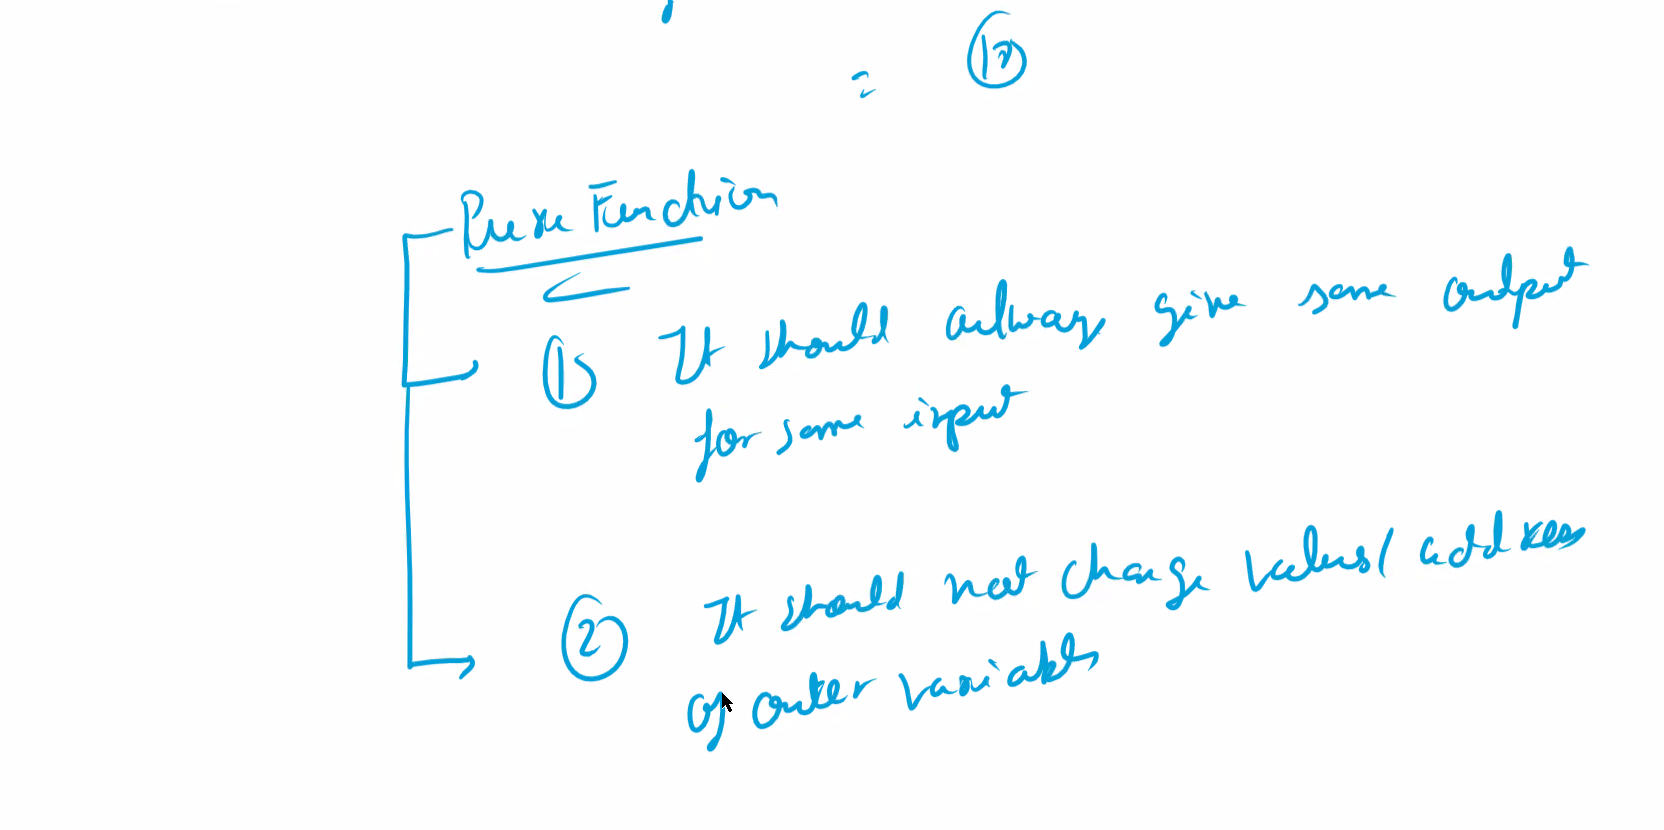 =
Pure Function
① It should always give same output
for same input
② It should not change values/ address
of outer variables